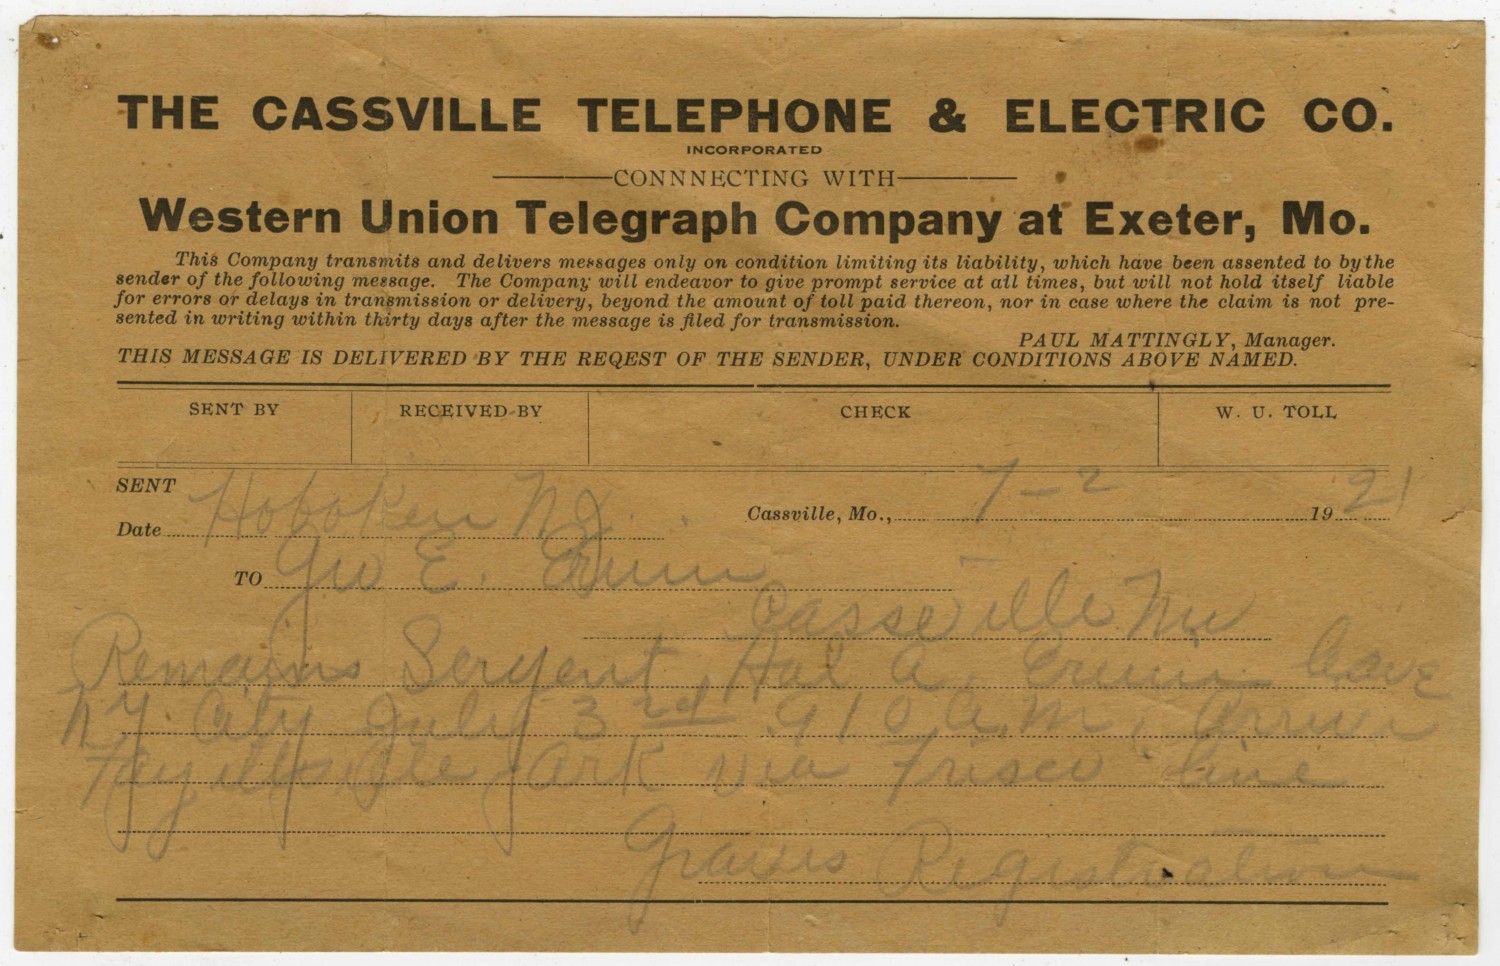 THE CASSVILLE TELEPHONE & ELECTRIC CO.
INCORPORATED
CONNNECTING WITH
Western Union Telegraph Company at Exeter, Mo.
This Company transmits and delivers messages only on condition limiting its liability, which have been assented to by the
sender of the following message. The Company will endeavor to give prompt service at all times, but will not hold itself liable
for errors or delays in transmission or delivery, beyond the amount of toll paid thereon, nor in case where the claim is not pre-
sented in writing within thirty days after the message is filed for transmission.
PAUL MATTINGLY, Manager.
THIS MESSAGE IS DELIVERED BY THE REQEST OF THE SENDER, UNDER CONDITIONS ABOVE NAMED.
SENT BY RECEIVED BY CHECK W. U. TOLL
SENT
Date Hoboken N.J. Cassville, Mo., 7-2 1921
TO Geo E. Erwin
Cassville Mo
Remains Sergent Hal A. Erwin leave
N.Y. City July 3rd 910 A.M, arrive
Ark via Frisco line
Graves Registration